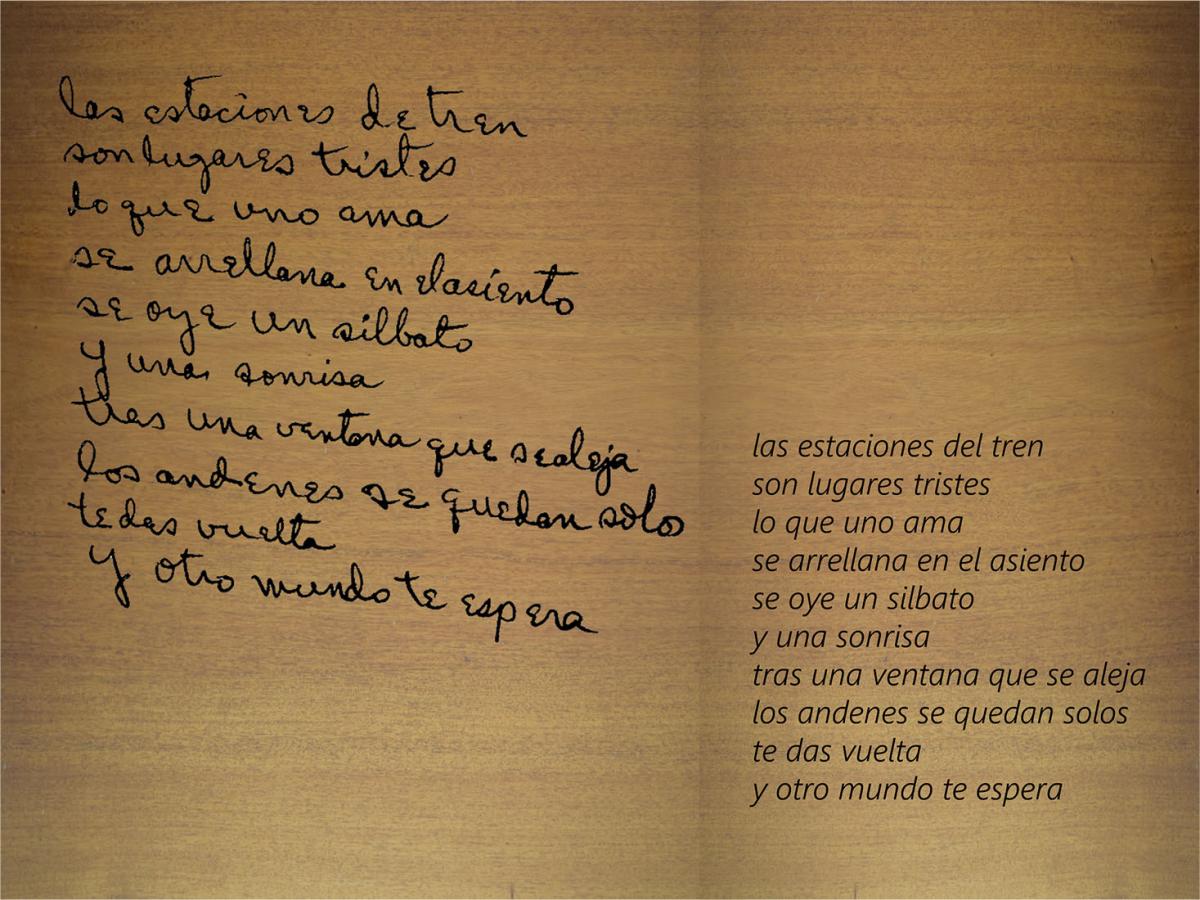 las estaciones de tren
son lugares tristes
lo que uno ama
se arrellana en el asiento
se oye un silbato
y una sonrisa
tras una ventana que se aleja
los andenes se quedan solo
te das vuelta
y otro mundo te espera
las estaciones del tren
son lugares tristes
lo que uno ama
se arrellana en el asiento
se oye un silbato
y una sonrisa
tras una ventana que se aleja
los andenes se quedan solos
te das vuelta
y otro mundo te espera